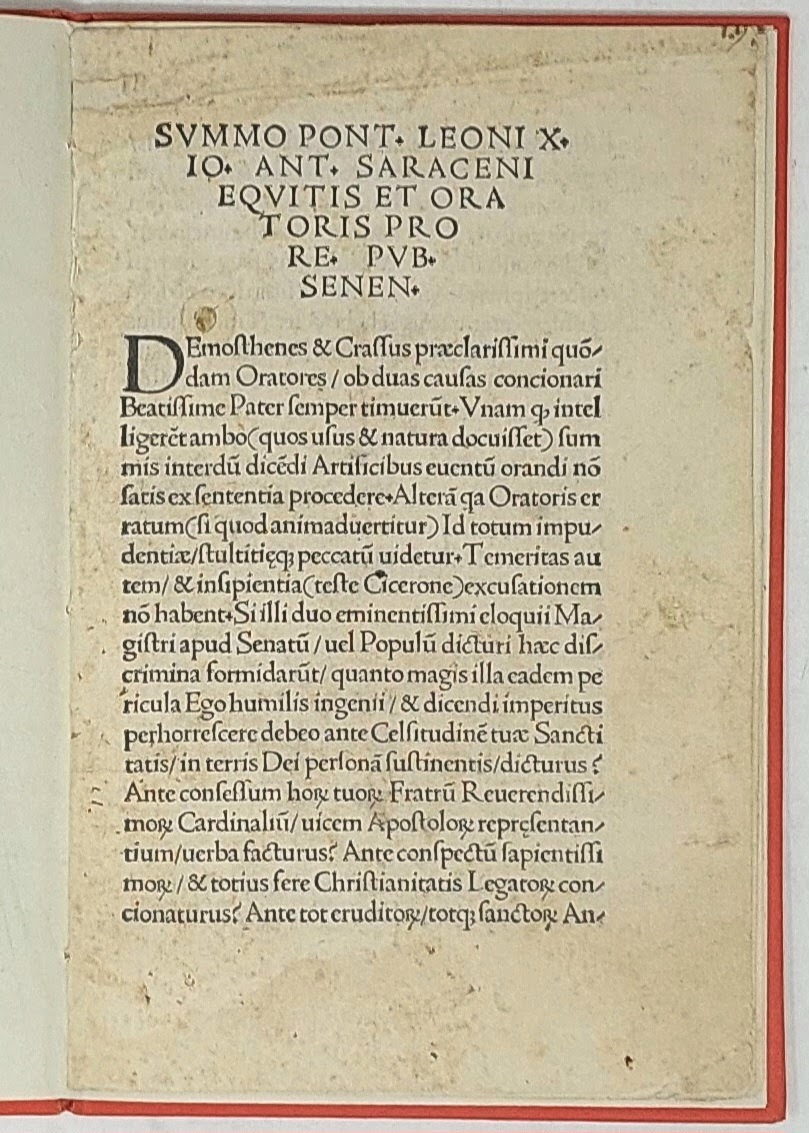 SVMMO PONT. LEONI X.
IO. ANT. SARACENI
EQVITIS ET ORA
TORIS PRO
RE. PVB.
SENEN.
DEmosthenes & Crassus præclarissimi quō/
dam Oratores / ob duas causas concionari
Beatissime Pater semper timuerūt. Vnam q̢ intel
ligerēt ambo (quos usus & natura docuisset) sum
mis interdū dicēdi Artificibus euentū orandi nō
satis ex sententia procedere. Alterā qa Oratoris er
ratum (si quod animaduertitur) Id totum impu/
dentiæ/stultitięqꝫ peccatū uidetur. Temeritas au
tem/ & insipientia (teste Cicerone) excusationem
nō habent. Si illi duo eminentissimi eloquii Ma/
gistri apud Senatū / uel Populū dicturi hæc dis/
crimina formidarūt / quanto magis illa eadem pe
ricula Ego humilis ingenii / & dicendi imperitus
perhorrescere debeo ante Celsitudinē tuæ Sancti
tatis / in terris Dei personā sustinentis / dicturus?
Ante confessum hoꝝ tuoꝝ Fratrū Reuerendissi/
moꝝ Cardinaliū / uicem Apostoloꝝ repręsentan/
tium / uerba facturus? Ante conspectū sapientissi
moꝝ / & totius fere Christianitatis Legatoꝝ con/
cionaturus? Ante tot eruditoꝝ / totqꝫ sanctoꝝ An/